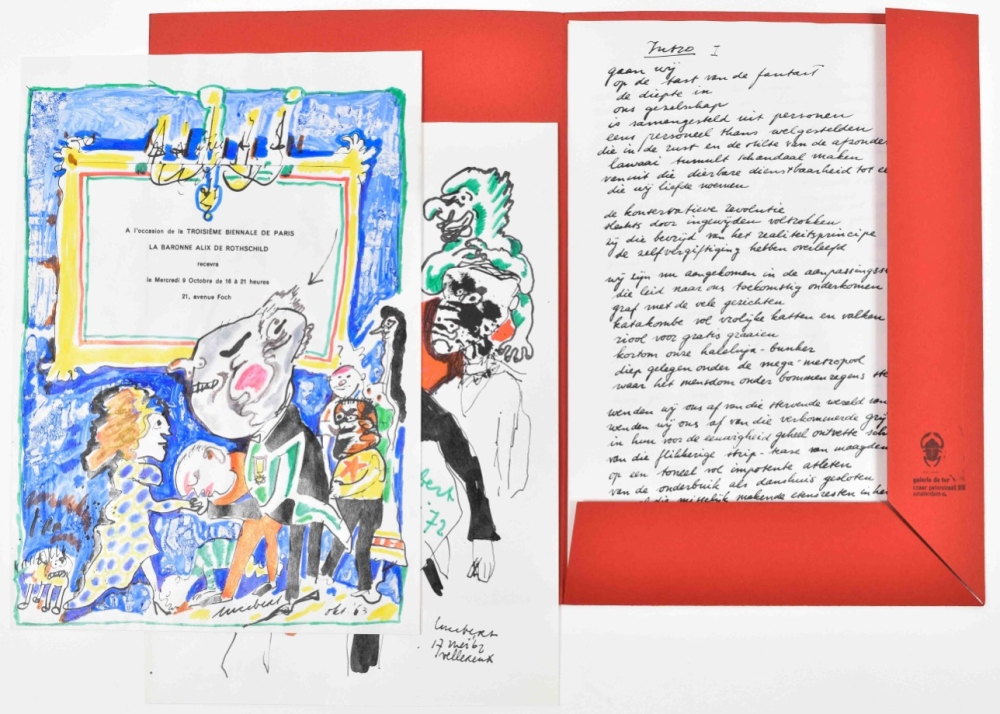 A l'occasion de la TROISIÈME BIENNALE DE PARIS
LA BARONNE ALIX DE ROTHSCHILD
recevra
le Mercredi 9 Octobre de 16 à 21 heures
21, avenue Foch
lucebert okt '63
bert
72
lucebert
17 mei '62
Intro I
gaan wij
op de tast van de fantast
de diepte in
ons gezelschap
is samengesteld uit personen
eens personeel thans welgestelden
die in de rust en de stilte van de afzonde
lawaai tumult schandaal maken
vanuit die dierbare dienstbaarheid tot
die wij liefde noemen
de konservatieve revolutie
slechts door ingewijden voltrokken
zij die bevrijd van het realiteitsprincipe
de zelfvergiftiging hebben overleefd
wij zijn nu aangekomen in de aanpassings
die leid naar ons toekomstig onderkomen
graf met de vele gezichten
katakombe vol vrolijke katten en valken
riool voor gratis graaien
kortom onze haleluja-bunker
diep gelegen onder de mega-metropool
waar het mensdom onder bommenregens
wenden wij ons af van die stervende wereld
wenden wij ons af van die verkommerde
in hun voor de eeuwigheid geheel ontvette
van die flikkerige strip-tease van maagden
op een toneel vol impotente atleten
van de onderbuik als danshuis gesloten
die misselijk makende etensresten in
galerie de tor